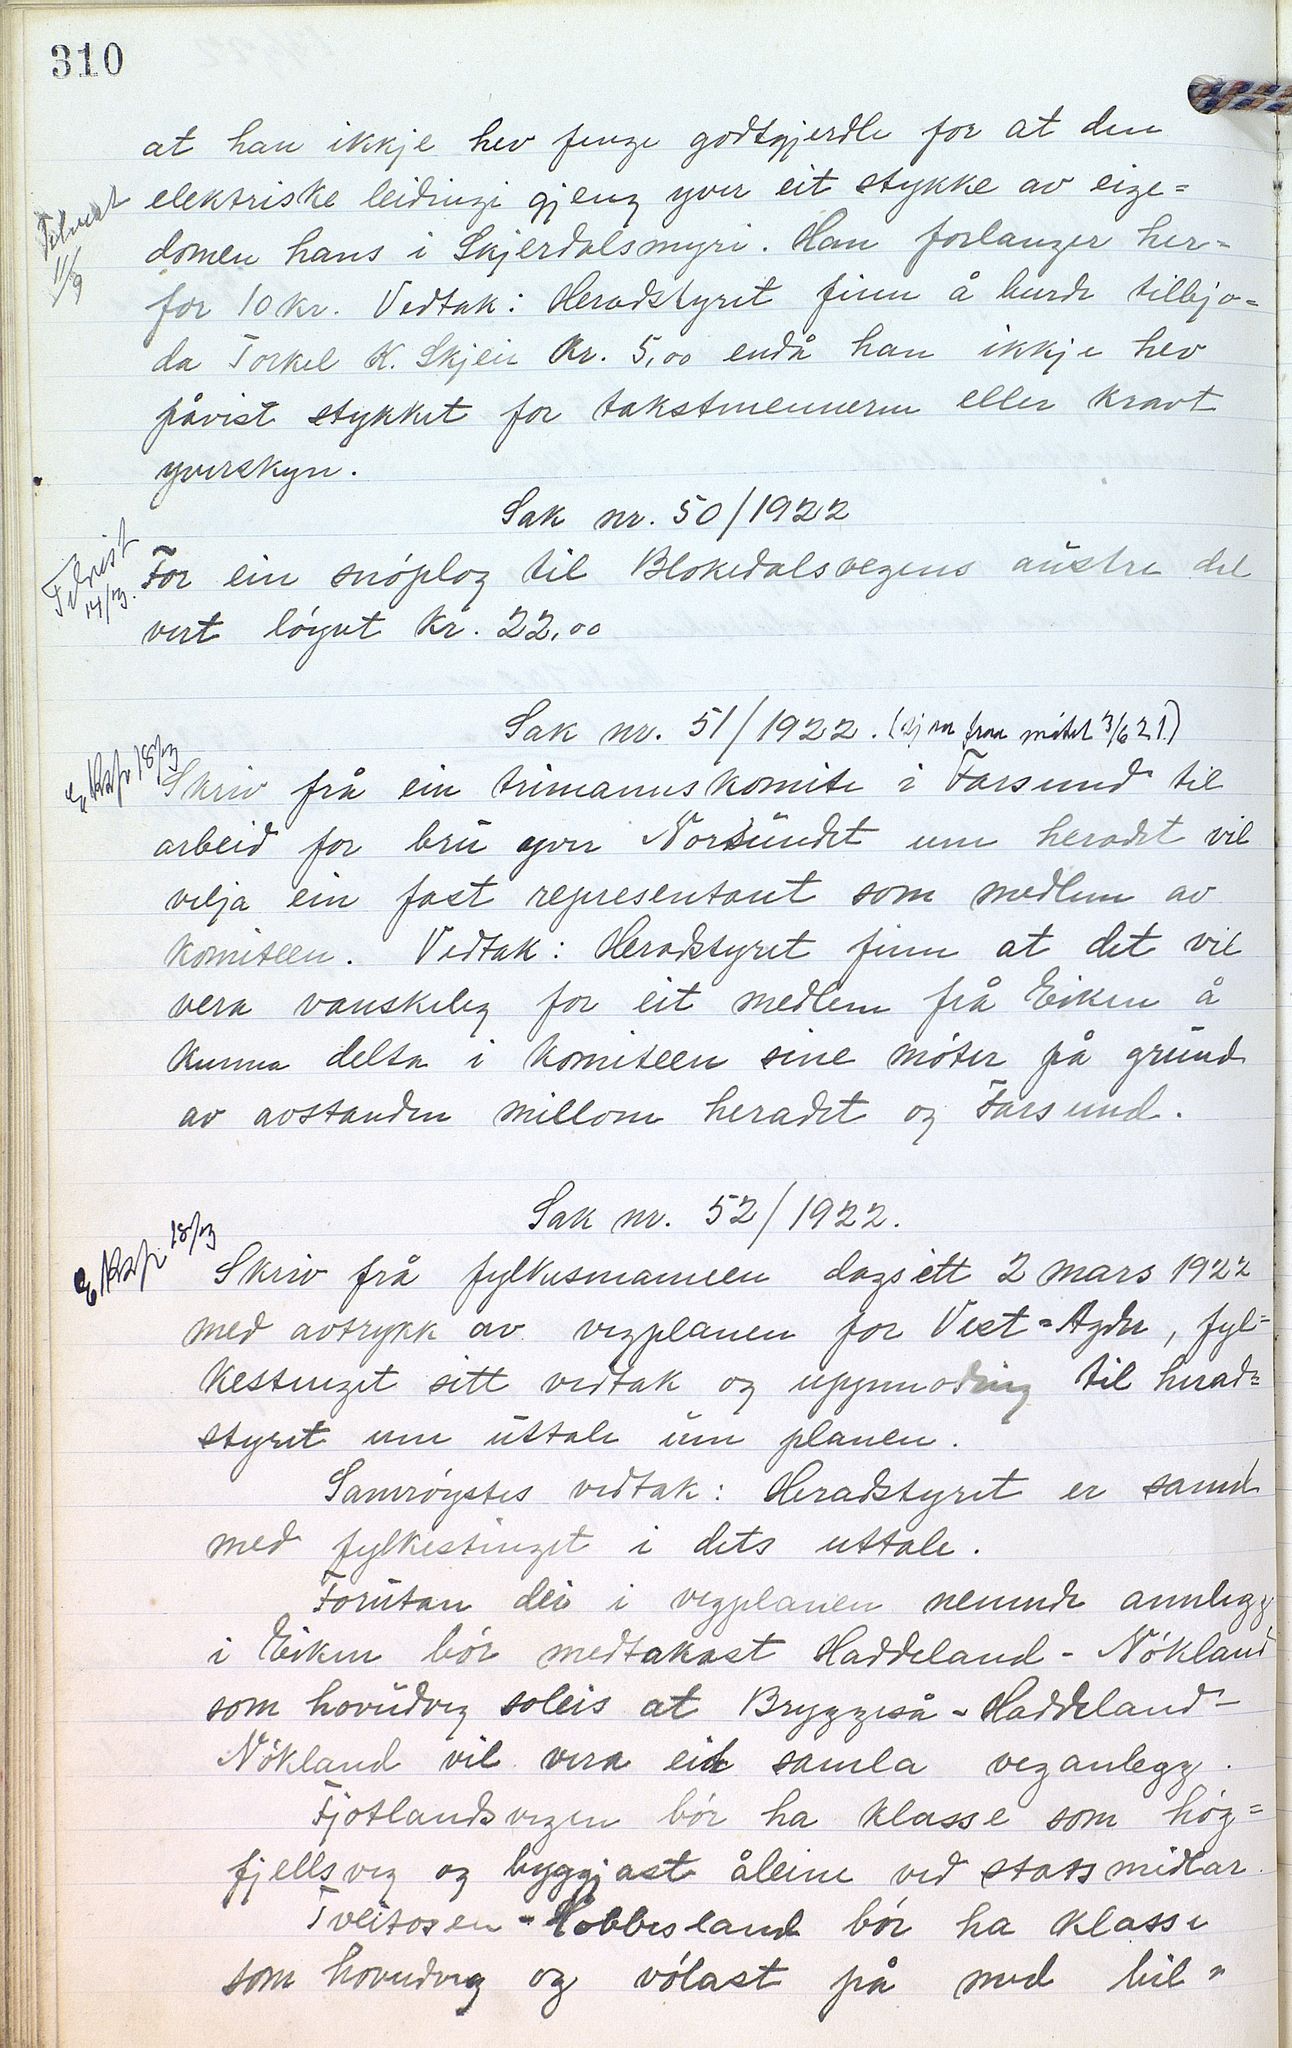 310
at han ikkje hev fenge godtgjerdle for at den
elektriske leidingi gjeng yver eit stykke av eige=
Tilvist
11/9
domen hans i Skjerdalsmyri. Han forlanger her=
for 10 kr. Vedtak: Heradstyret finn å burde tilbjo=
da Torkel K. Skjeie Kr. 5,00 endå han ikkje hev
påvist stykket for takstmennerne eller kravt
yverskyn.
Sak nr. 50/1922
Tilvist
14/3.
For ein snóplog til Blokedalsvegens austre del
vert lóyvet kr. 22,00
Sak nr. 51/1922. (sj sak fraa mótet 3/6 21.)
Eksp 18/3
Skriv frå ein trimannskomite i Farsund til
arbeid for bru yver Norsundet um heradet vil
velja ein fast representant som medlem av
komiteen. Vedtak: Heradstyret finn at det vil
vera vanskeleg for eit medlem frå Eiken å
kunna delta i komiteen sine móter på grund
av avstanden millom heradet og Farsund.
Sak nr. 52/1922.
Eksp 18/3
Skriv frå fylkesmannen dagsett 2 mars 1922
med avtrykk av vegplanen for Vest=Agder, fyl=
kestinget sitt vedtak og uppmoding til herad=
styret um uttale um planen.
Samróystes vedtak: Heradstyret er samd
med fylkestinget i dets uttale.
Forutan dei i vegplanen nemnde annlegg
i Eiken bór medtakast Haddeland - Nókland
som hovudveg soleis at Bryggeså - Haddeland -
Nókland vil vera eit samla veganlegg.
Fjotlandsvegen bór ha klasse som hóg=
fjellsveg og byggjast åleine ved statsmidlar.
Tveitosen - Hobbesland bór ha klasse
som hovudveg og vólast på med bil=